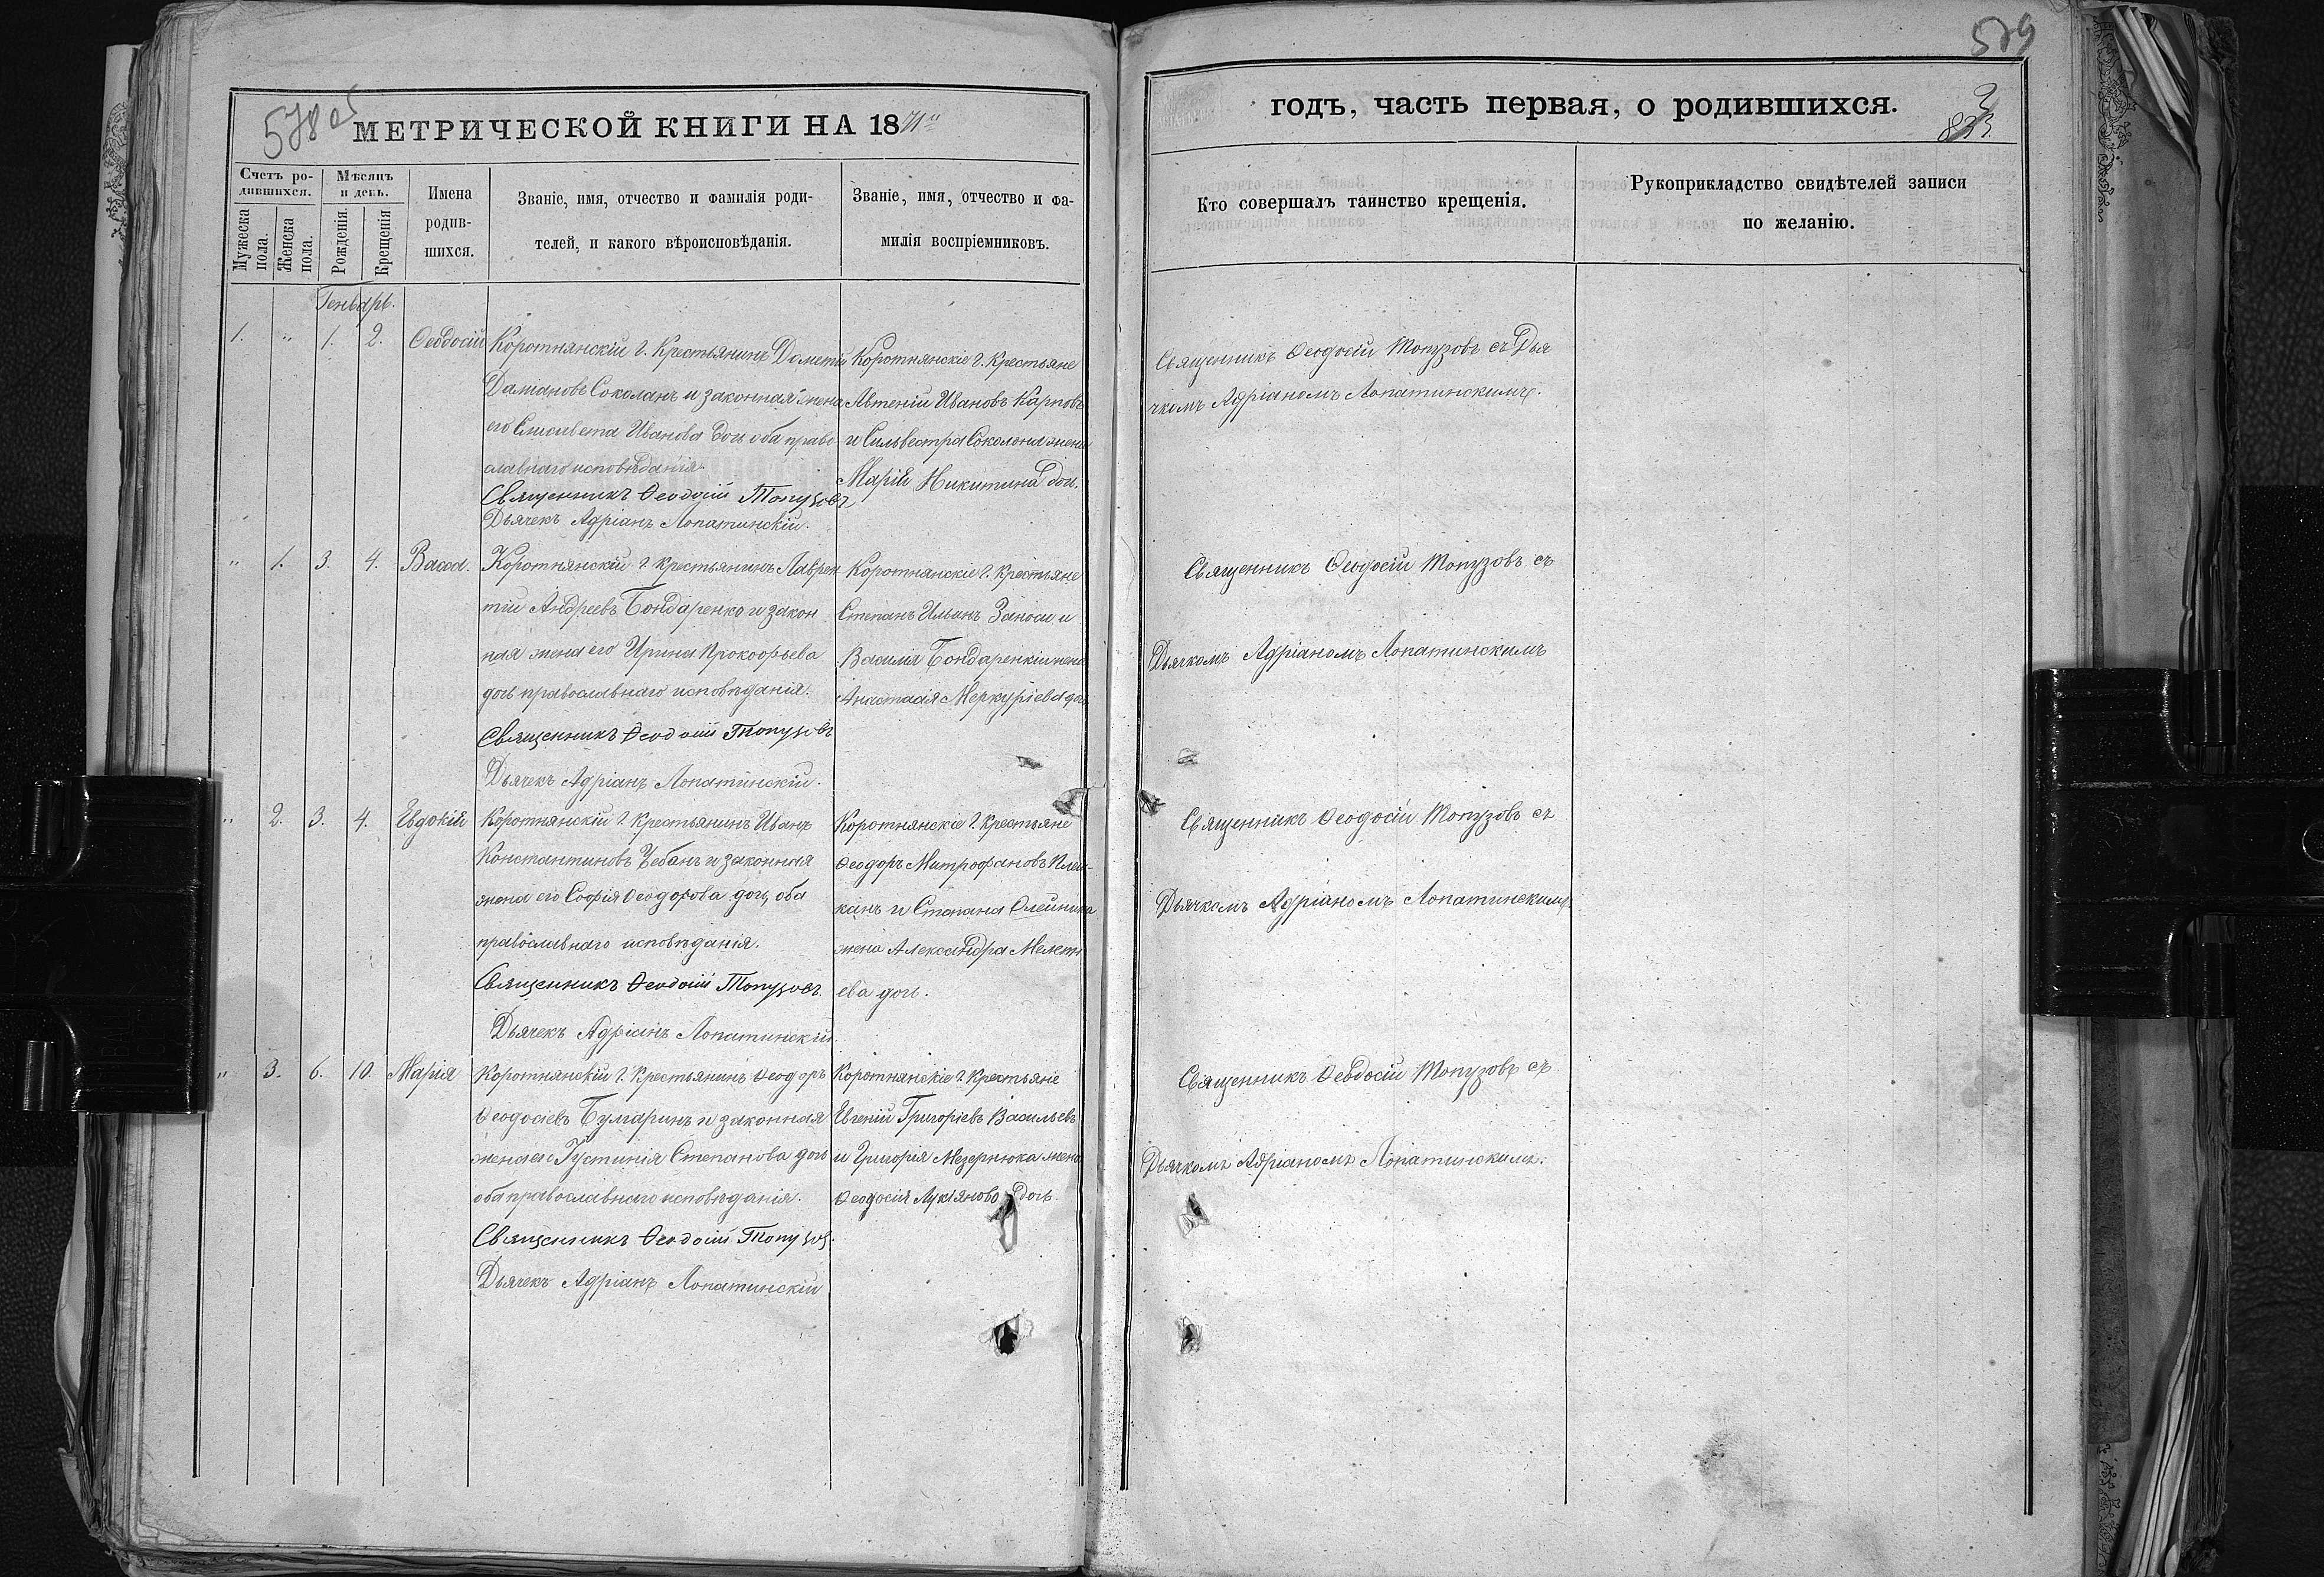 578 об
МЕТРИЧЕСКОЙ КНИГИ НА 1871й
Счетъ ро-
дившихся.
Мѣсяцъ
и день.
Мужеска
пола.
Женска
пола.
Рожденія.
Крещенія
Имена
родив-
шихся.
Званіе, имя, отчество и фамилія роди-
телей, и какого вѣроисповѣданія.
Званіе, имя, отчество и фа-
милія воспріемниковъ.
Генварь.
1. " 1. 2. Ѳеодосій
Коротнянскій ч. Крестьянинъ Дометій
Дамановъ Соколанъ и законная жена
его Елисавета Иванова дочь оба право
славнаго исповѣданія.
Священникъ Ѳеодосій Топузовъ
Дьячекъ Адріанъ Лопатинскій.
Коротнянскіе ч. Крестьяне
Автеній Ивановъ Карповъ
и Сильвестра Соколона жена
Марія Никитина дочь.
" 1. 3. 4. Васса.
Коротнянскій ч. Крестьянинъ Лаврен
тій Андреевъ Бондаренко и закон
ная жена его Ирина Прокофьева
дочь православнаго исповѣданія.
Священникъ Ѳеодосій Топузовъ
Дьячекъ Адріанъ Лопатинскій.
Коротнянскіе ч. Крестьяне
Степанъ и
Василія Бондаренкі жена
Анастасія Меркуріева дочь
" 2. 3. 4. Евдокій
Коротнянскій ч. Крестьянинъ Иванъ
Константиновъ Чебанъ и законная
жена его Софія Ѳеодорова дочь, оба
православнаго исповѣданія.
Священникъ Ѳеодосій Топузовъ.
Дьячекъ Адріанъ Лопатинскій.
Коротнянскіе ч. Крестьяне
Ѳеодоръ Митрофановъ Плеш-
канъ и Степана Олейника
жена Александра Мелеті
ева дочь.
" 3. 6. 10. Марія
Коротнянскій ч. Крестьянинъ Ѳеодоръ
Ѳеодосіевъ Булгаринъ и законная
жена его Густинія Степанова дочь
оба православнаго исповѣданія.
Священникъ Ѳеодосій Топузов.
Дьячекъ Адріанъ Лопатинскій
Коротнянскіе ч. Крестьяне
Евгеній Григоріевъ Васильевъ
и Григорія Мезернюка жена
Ѳеодосія Лукіянова дочь.
579
годъ, часть первая, о родившихся.
Кто совершалъ таинство крещенія.
Рукоприкладство свидѣтелей записи
по желанію.
Священникъ Ѳеодосій Топузовъ съ Дья
чкомъ Адріаномъ Лопатинскимъ.
Священникъ Ѳеодосій Топузовъ съ
Дьячкомъ Адріаномъ Лопатинскимъ
Священникъ Ѳеодосій Топузовъ съ
Дьячкомъ Адріаномъ Лопатинскимъ.
Священникъ Ѳеодосій Топузовъ съ
Дьячкомъ Адріаномъ Лопатинскимъ.